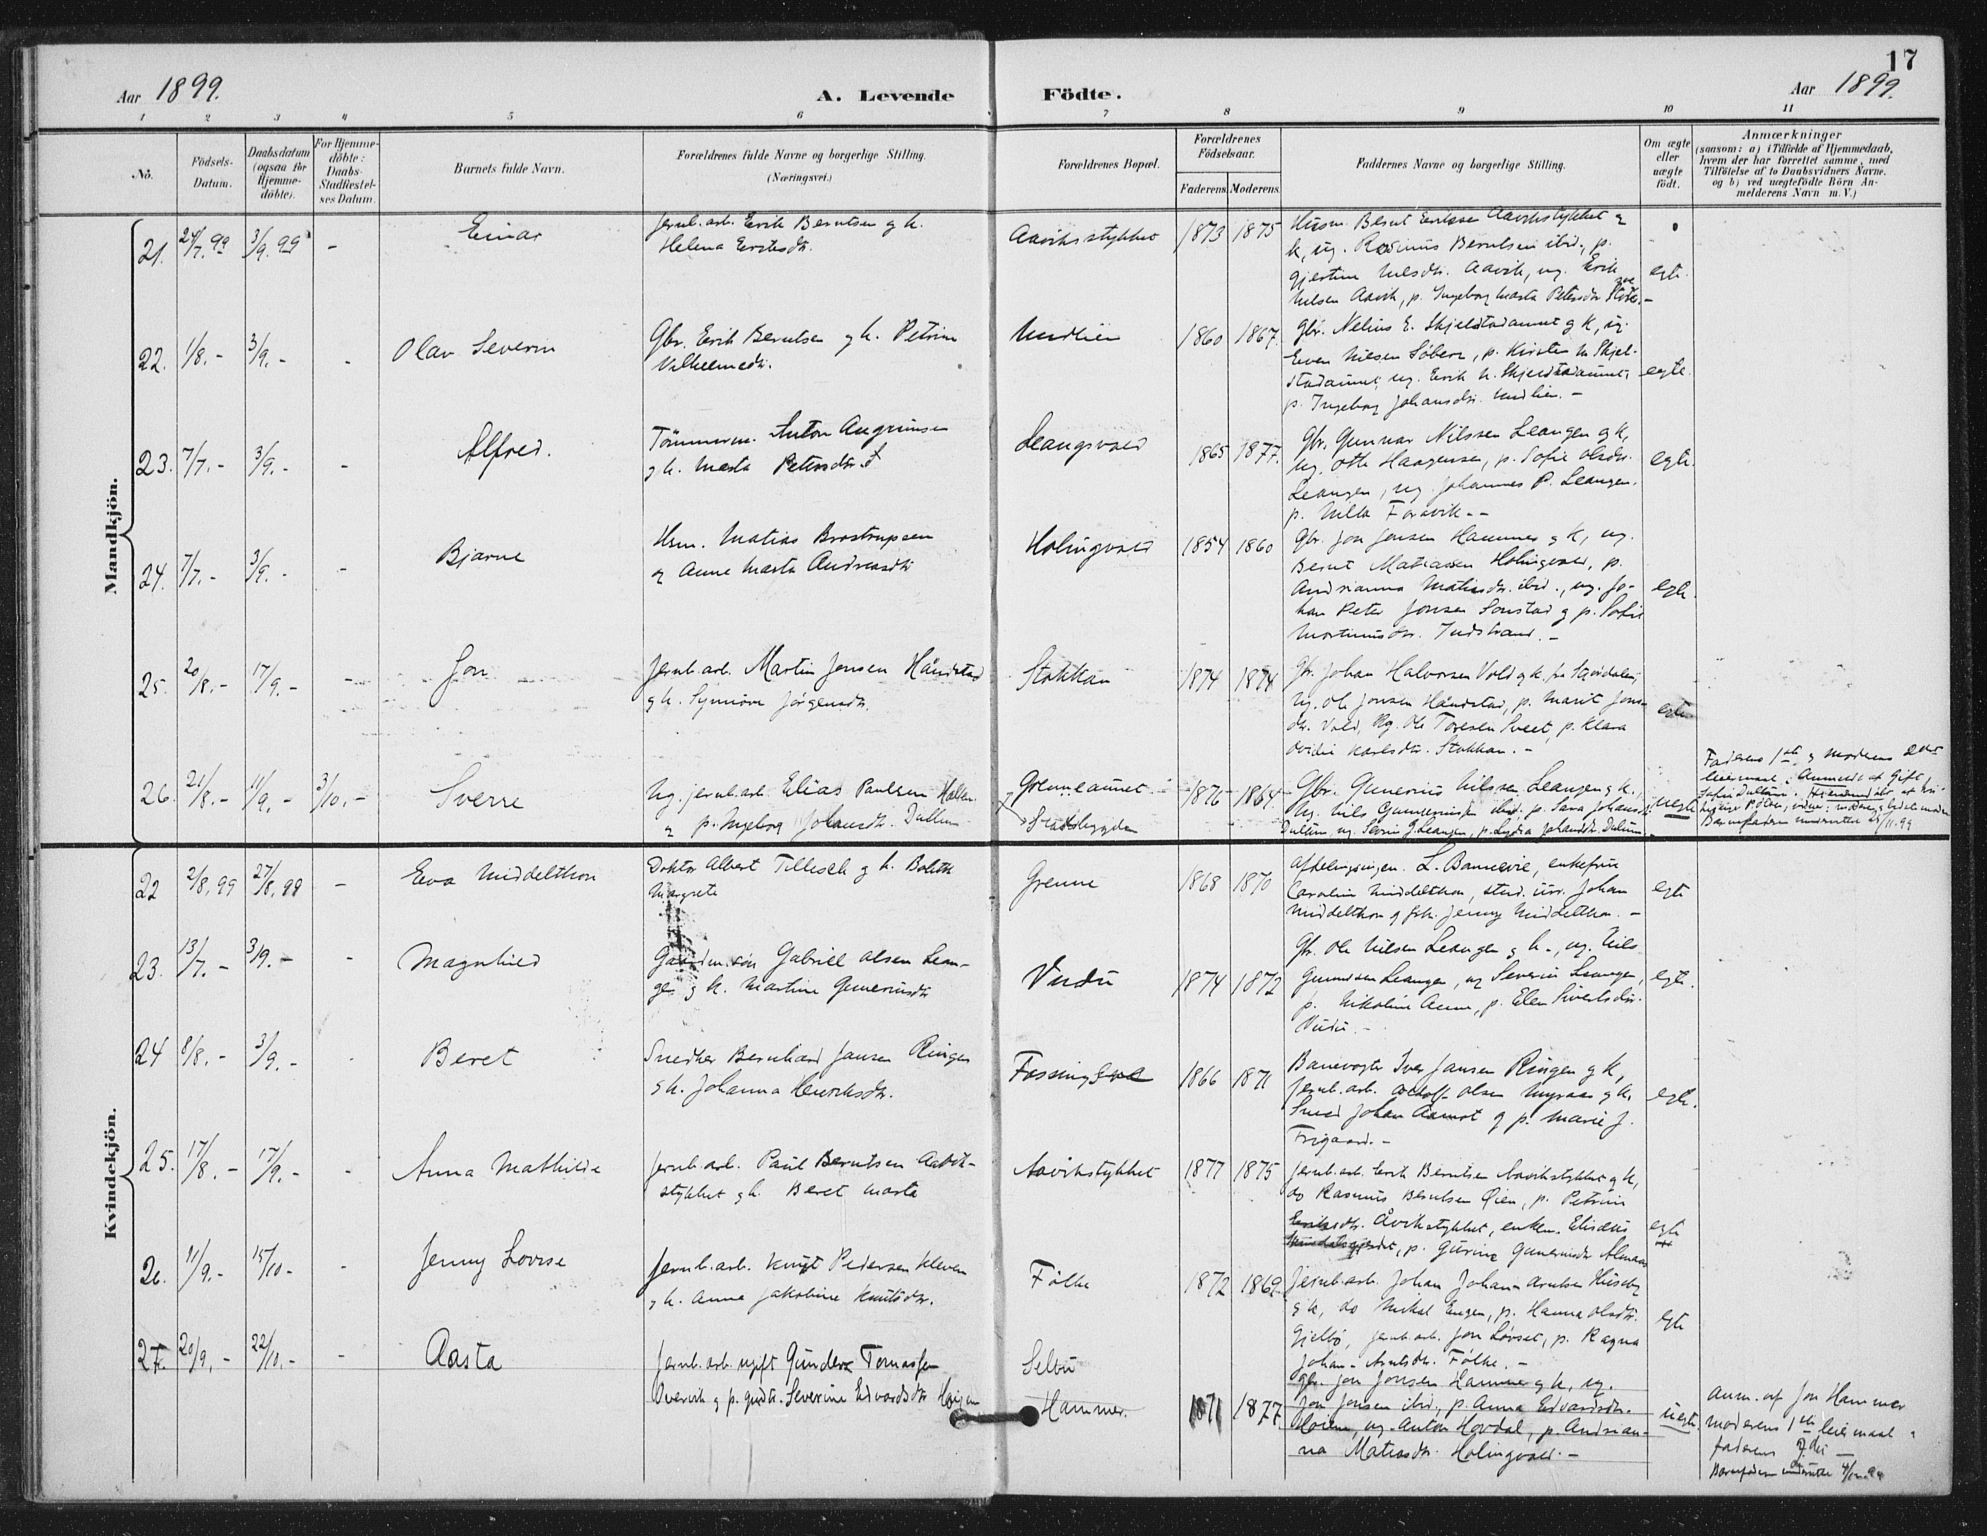 17
Aar 1899.
A. Levende
Födte.
Aar 1899.
1 2 3 4 5 6 7 8 9 10 11
No.
Födsels-
Datum.
Daabsdatum
(ogsaa for
Hjemme-
döbte).
For Hjemme-
döbte:
Daabs-
Stadfæstel-
ses Datum.
Barnets fulde Navn.
Forældrenes fulde Navne og borgerlige Stilling.
(Næringsvei.)
Forældrenes Bopæl.
Forældrenes
Födselsaar.
Faderens. Moderens.
Faddernes Navne og borgerlige Stilling.
Om ægte
eller
uægte
födt.
Anmærkninger
(saasom: a) i Tilfælde af Hjemmedaab,
hvem der har forrettet samme, med
Tilföielse af to Daabsvidners Navne.
og b) ved uægtefödte Börn An-
melderens Navn m. V.)
Mandkjön.
21. 24/7.99 3/9.99 - Einar
Jernb.arb. Erik Berntsen g k.
Helena
Aavikstykket 1873 1875
Husm. Bernt Eriksen Aavikstykket g
k, ug. Rasmus Berntsen ibid., p.
Gjertine Nilsdtr. Aavik, ug. Erik
Nilsen Aavik, p. Ingeborg Marta Petersdtr
egte.
22. 1/8.- 3/9.- - Olav Severin
Gbr. Erik Berntsen g k. Petrine
Vilhelmsdtr.
1860 1867.
Gbr. Nelius E. Skjelstadaunet g k, ug.
Even Nilsen Söberg, p. Kirsten N. Skjel-
stadaunet, ug. Erik N. Skjelstadaunet,
p. Ingeborg Johansdtr.
egte.
23. 7/7.- 3/9.- - Alfred.
Tömmerm. Anton Angrimsen
g k. Marta Petersdtr.
Leangsvald 1865 1877.
Gbr. Gunnar Nilssen Leangen g k,
ug. Otte Haagensen, p. Sofie Olsdtr.
Leangen, ug. Johannes P. Leangen.
p. Milla Foravik. -
egte.
24. 7/7.- 3/9.- - Bjarne
Hsm. Matias Brostrupsen
g Anne Marta Andreasdtr
Holingvald 1854 1860
Gbr. Jon Jensen Hammer g k, ug.
Bernt Matiassen Holingvald, p.
Andrianna Matiasdtr. ibid., ug. Jo-
han Peter Jonsen Sonstad g p. Sofie
Martinusdtr. Indstrand. -
egte.
25. 20/8.- 17/9.- - Jon
Jernb.arb. Martin Jensen Håndstad
g k. Synnöve Jörgensdtr.
Stokkan 1874 1874
Gbr. Johan Halvorsen Vold g k. fra Stjördalen,
Ug. Ole Jonsen Håndstad, p. Marit Jons-
dtr. Vold, Ug. Ole Toresen Sveet, p. Klara
Ovidie Karlsdtr. Stokkan. -
egte
26. 21/8.- 11/9.- 3/10.- Sverre
Ug. jernb.arb. Elias Paulsen
g p. Ingeborg Johansdtr. Dullum
Grenneaunet
Stadsbygden
1876 1864
Gbr. Gunerius Nilssen Leangen g k.,
Ug. Nils Guneriussen ibid. p. Sara Johansdtr
Dullum, ug. Sevrin G. Leangen, p. Lydia Johansdtr. Dullum.
uegte
Faderens 1ste g moderens 2det
leiermaal. Anmeldt af Gift
Barnefaderen underrettet 25/11.99
Kvindekjön.
22 2/8.99 27/8.99 - Eva Middelthon
Doktor Albert Tillisch g k. Bolette
Margrete
Grenne 1868 1870
Afdelingsingen. L. Bannevie, enkefrue
Caroline Middelthon, stud. jur. Johan
Middelthon g frk. Jenny Middelthon. -
egte
23. 13/7.- 3/9.- - Magnhild
Gaardm.sön Gabriel Olsen Lean-
gen g k. Martine Guneriusdtr
Vudu 1874 1872
Gbr. Ole Nilsen Leangen g k., ug. Nils
Gunnersen Leangen, ug Severin Leangen,
p. Nikoline Aune, p. Elen Sivertsdtr.
Vudu. -
egte.
24 8/8.- 3/9.- - Beret
Snedker Bernhard Jansen Ringen
g k. Johanna Henriksdtr.
1866 1871
Banevogter Iver Jansen Ringen g k,
Jernb.arb. Adolf Olsen Myraas g k,
Smed Johan Aamot g p. Marie J.
Frigaard. -
egte.
25. 17/8.- 17/9.- - Anna Mathilde
Jernb.arb. Paul Berntsen Aavik-
stykket g k. Beret Marta
Aavikstykket 1877 1875
Jernb.arb. Erik Berntsen Aavikstykket g k,
do Rasmus Berntsen Öien, p. Petrine
Eriksdtr. Åvikstykket, enkem. Elisæus
p. Gurine Guneriusdtr
egte
26. 11/9.- 15/10.- - Jenny Lovise
Jernb.arb. Knut Pedersen Kleven
g k. Anne Jakobine Knutsdtr.
Fölke 1872 1869
Jernb.arb. Johan Johan-Arntsen Huseby
g k, do Mikal Engen, p. Hanna Olsdtr.
Gjelbö, jernb.arb. Jon Lövset, p. Ragna
Johan-Arntsdtr. Fölke. -
egte
27. 20/9.- 22/10.- - Aasta
Jernb.arb. ugift Gunder Tomassen
Overvik g p. Severine Edvardsdtr.
Selbu
Hammer.
1871 1877
Gbr. Jon Jonsen Hammer g k, ug.
Jon Jonsen ibid., p. Anna Edvardsdtr.
Höien, ug. Anton Hovdal, p. Andrian-
na Matiasdtr. Holingvald. -
uegte.
Anm. af Jon Hammer
moderens 1ste leiermaal
faderens 2det -
Barnefaderen underrettet